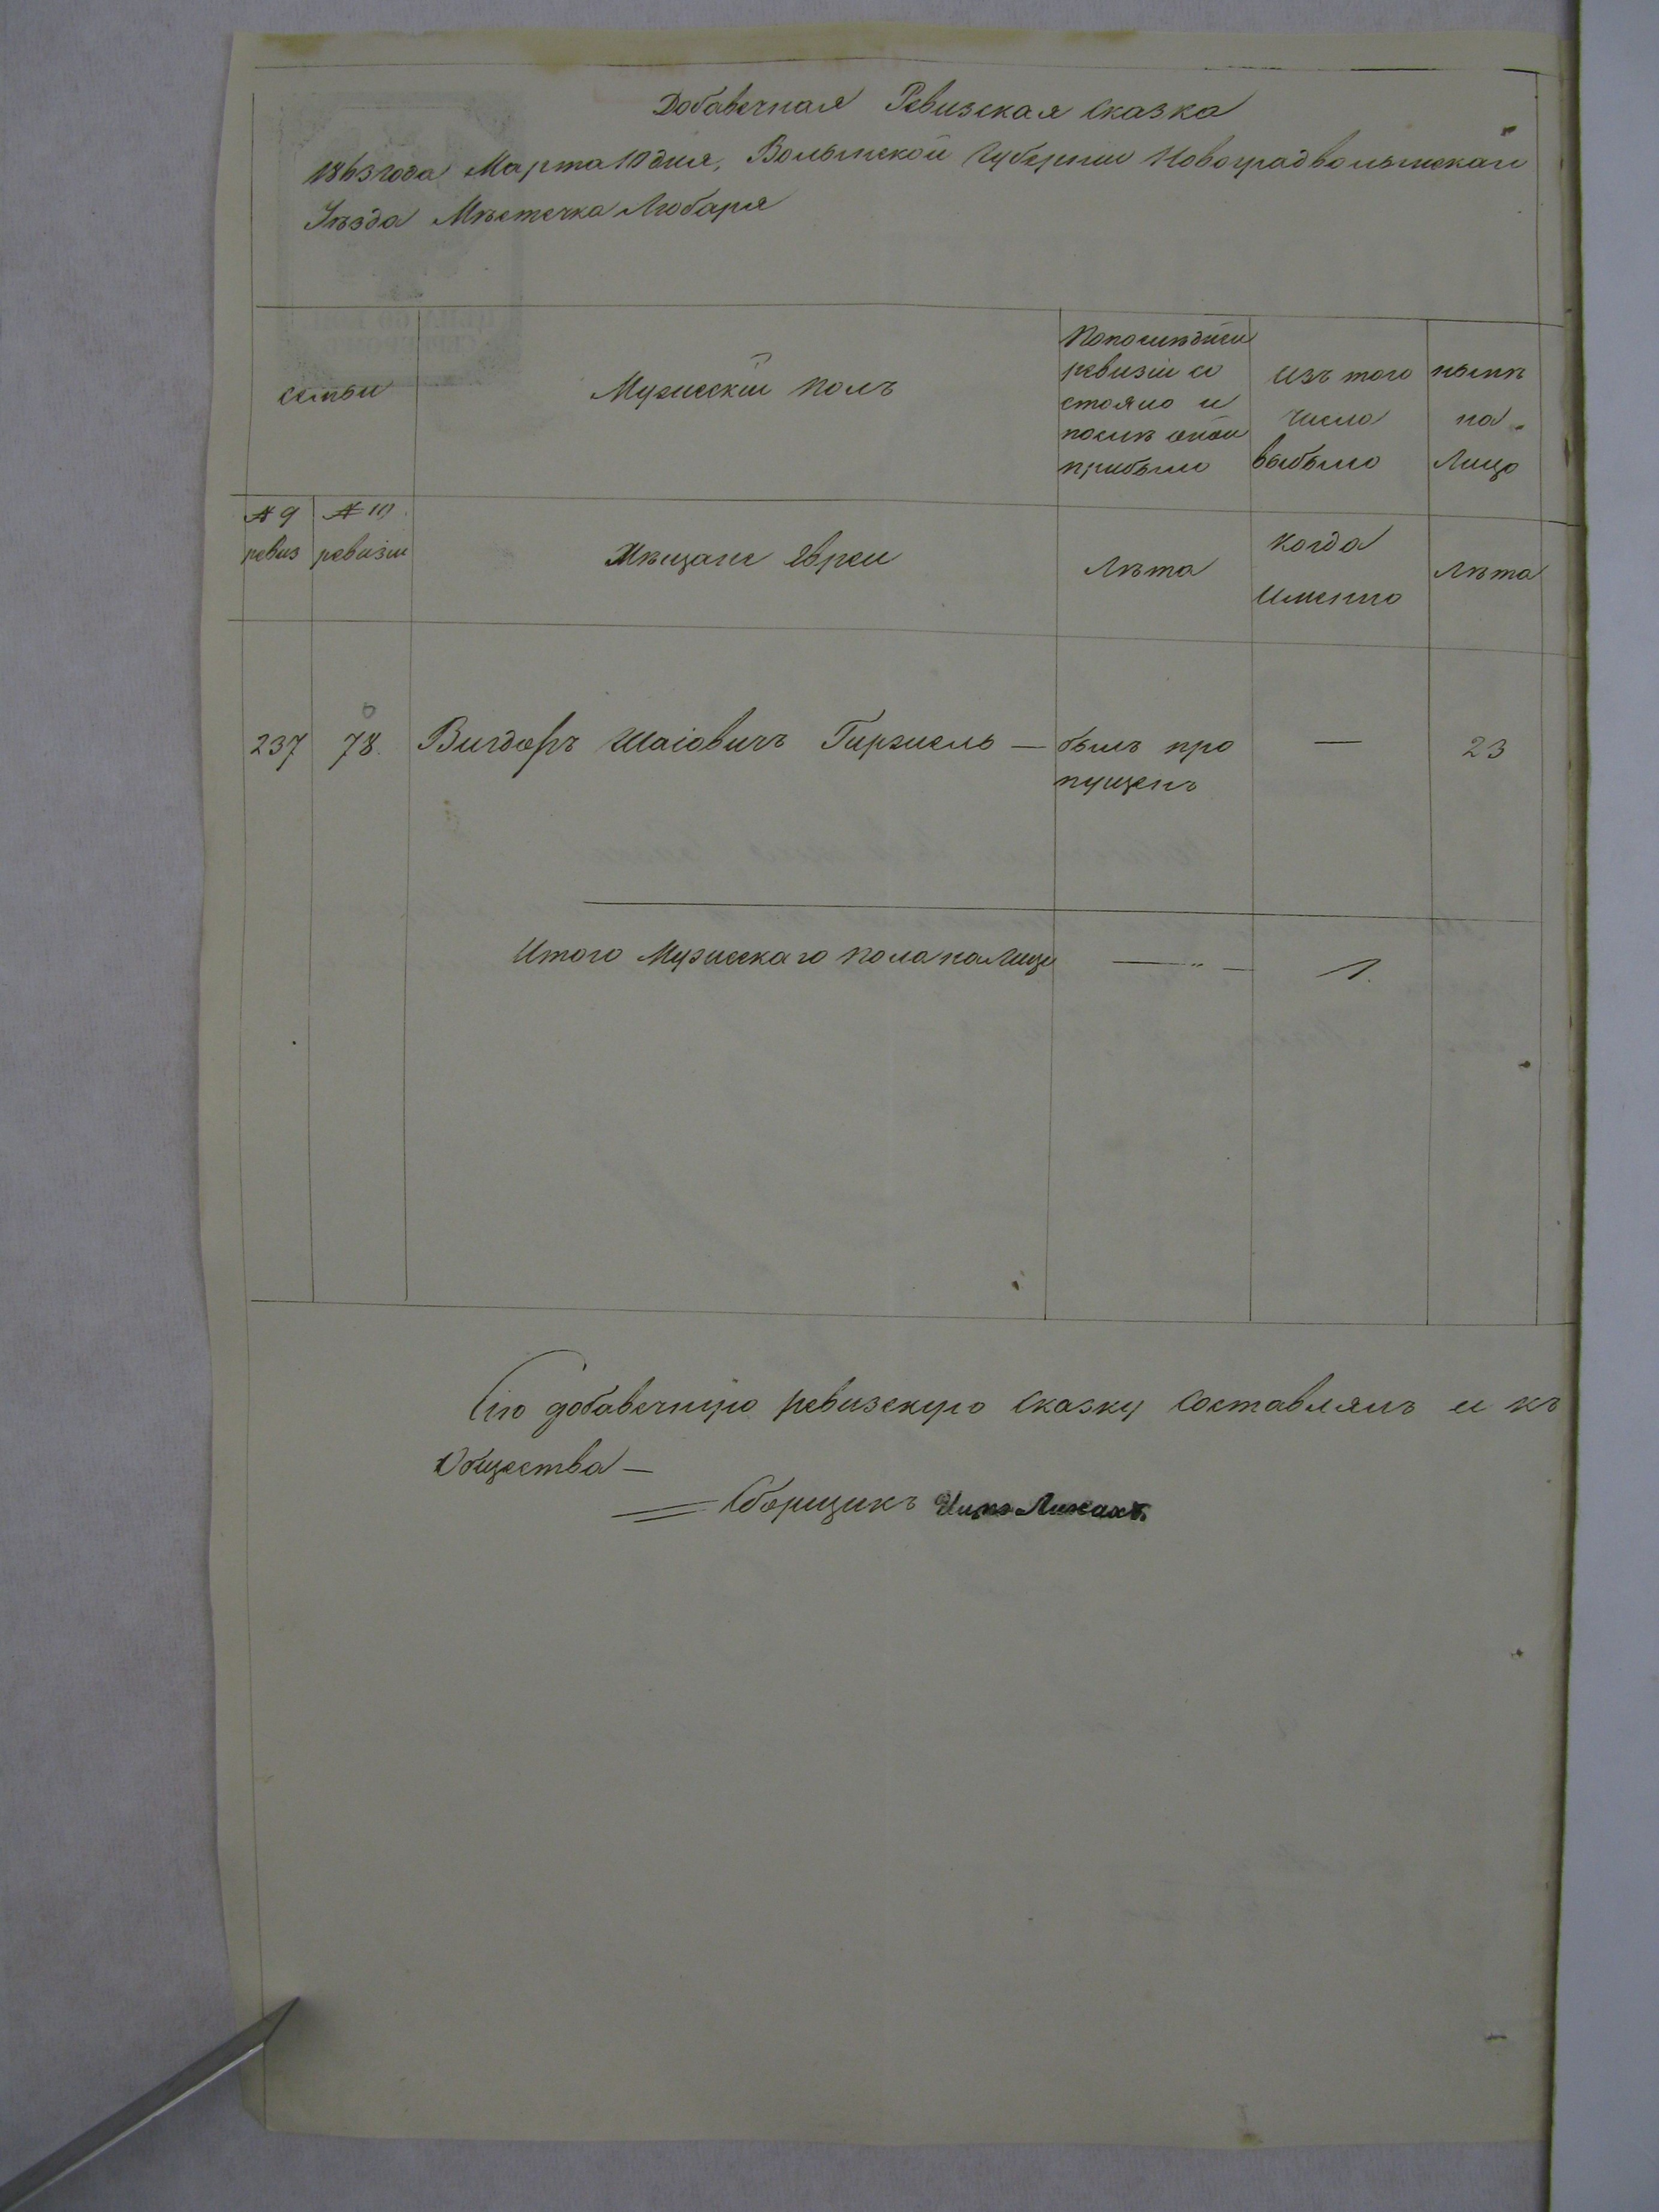 Добавечная Ревизская сказка
1863 года Марта 10 дня, Волынской Губернии Новоградволынскаго
Уѣзда Мѣстечка Любаря
семьи
Мужескій полъ
Попослѣдней
ревизіи со
стояло и
послѣ оной
прибыло
Изъ того
числа
выбыло
нынѣ
на
Лицо
№ 9
ревиз
№ 10
ревизіи
Мѣщане Евреи
Лѣта
Когда
Именно
Лѣта
237 78. Вигдоръ Шаіовичъ Гиржель — былъ про — 23
пущенъ
Итого Мужескаго пола налицо — „ — 1.
Сію добавечную ревизскую сказку Составлялъ и къ
Общества —
Сборщикъ